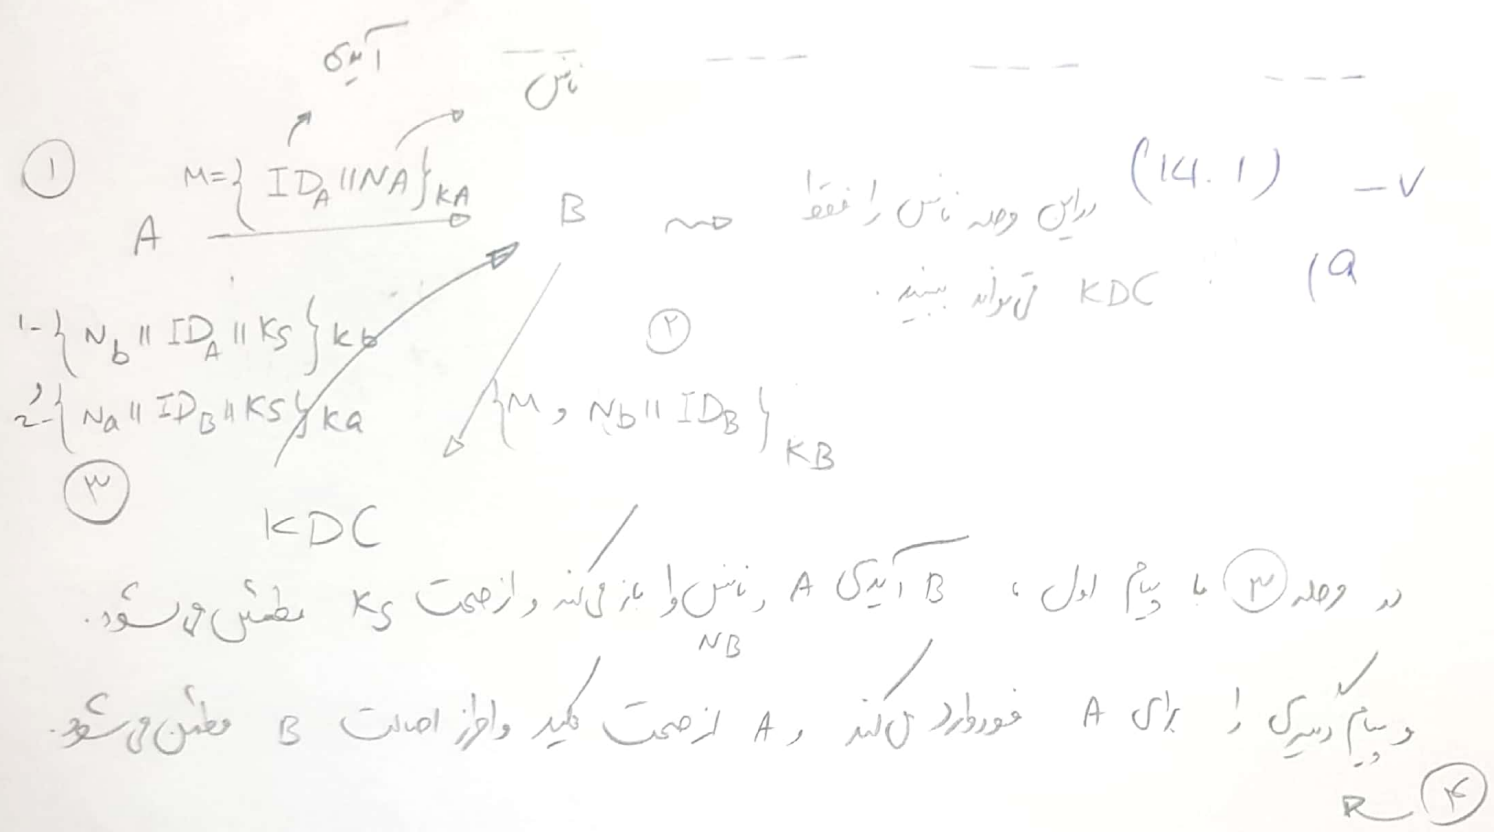 آیدی
ناس
۷- (14.1)
a)
① M={ ID_A || NA }_KA
A B دراین مرحله ناس را فقط
KDC می تواند ببیند.
1- { N_b || ID_A || Ks }_kb
②
و 2- { Na || ID_B || KS }_ka
{ M , Nb || ID_B }_KB
③
KDC
در مرحله ③ با پیام اول ، B آیدی A و ناس را باز می کند و از صحت Ks مطمئن می شود.
NB
و پیام دیگری را برای A فوروارد می کند و A از صحت کلید و احراز اصالت B مطمئن می شود.
④